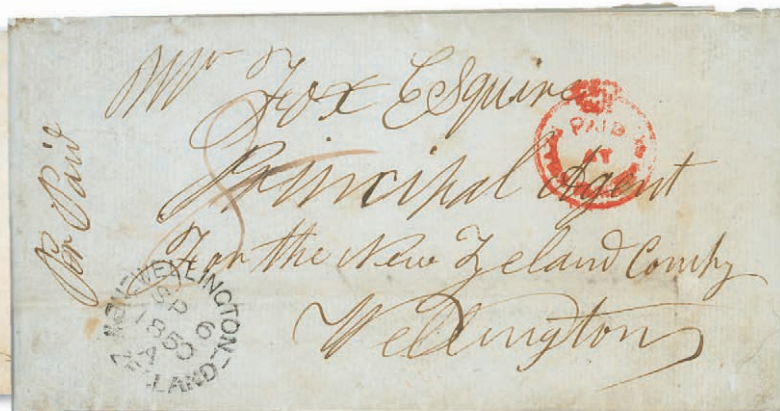 Wm Fox Esquire
Principal Agent
For the New Zeland Compy
Wellington
Per Paid
PAID
AT
WELLINGTON
NEW ZEALAND
SP 6
1850
A